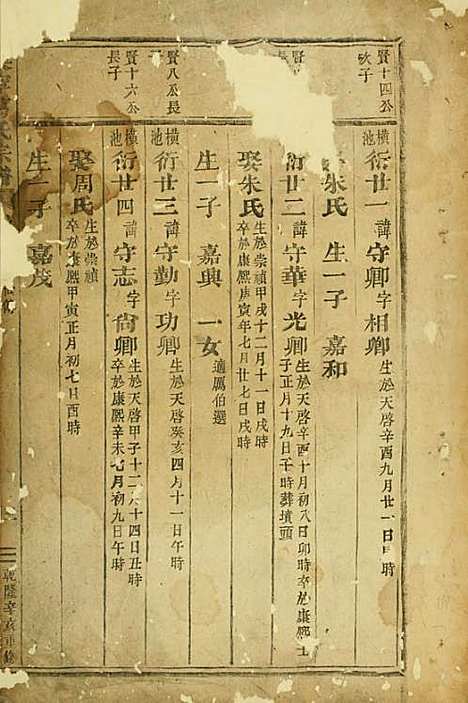 賢十四公
次子
橫池 衍廿一諱守卿字相卿 生於天啓辛酉九月廿一日
朱氏 生一子 嘉和
賢
衍廿二諱守華字光卿 生於天啓辛酉十月初八日卯時卒於康熙
子正月十九日午時葬墳頭
娶朱氏 生於崇禎甲戌十二月十一日戌時
卒於康熙庚寅年七月廿七日戌時
生一子 嘉興 一女 適厲伯選
賢八公長
橫池 衍廿三諱守勤字功卿 生於天啓癸亥四月十一日午時
賢十六公
長子
池 衍廿四諱守志字尙卿 生於天啓甲子十二月十四日丑時
卒於康熙辛未七月初九日午時
娶周氏 生於崇禎
卒於康熙甲寅正月初七日酉時
生一子 嘉茂
氏宗譜
乾隆辛亥重修